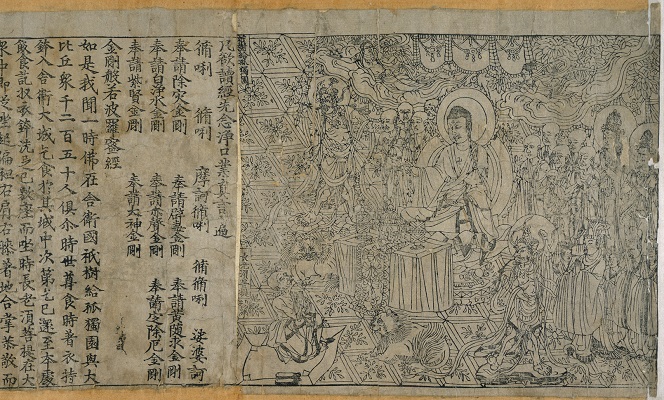 凡欲讀經先念淨口業真言一過
脩唎 脩唎 摩訶脩唎 脩脩唎 娑婆訶
奉請除災金剛 奉請辟毒金剛 奉請黃隨求金剛
奉請白淨水金剛 奉請赤聲金剛 奉請定除厄金剛
奉請紫賢金剛 奉請大神金剛
金剛般若波羅蜜經
如是我聞一時佛在舍衛國祇樹給孤獨園與大
比丘衆千二百五十人俱尒時世尊食時著衣持
鉢入舍衛大城乞食於其城中次第乞已還至本處
飯食訖收衣鉢洗足已敷座而坐時長老須菩提在大
衆中即從座起偏袒右肩右膝著地合掌恭敬而